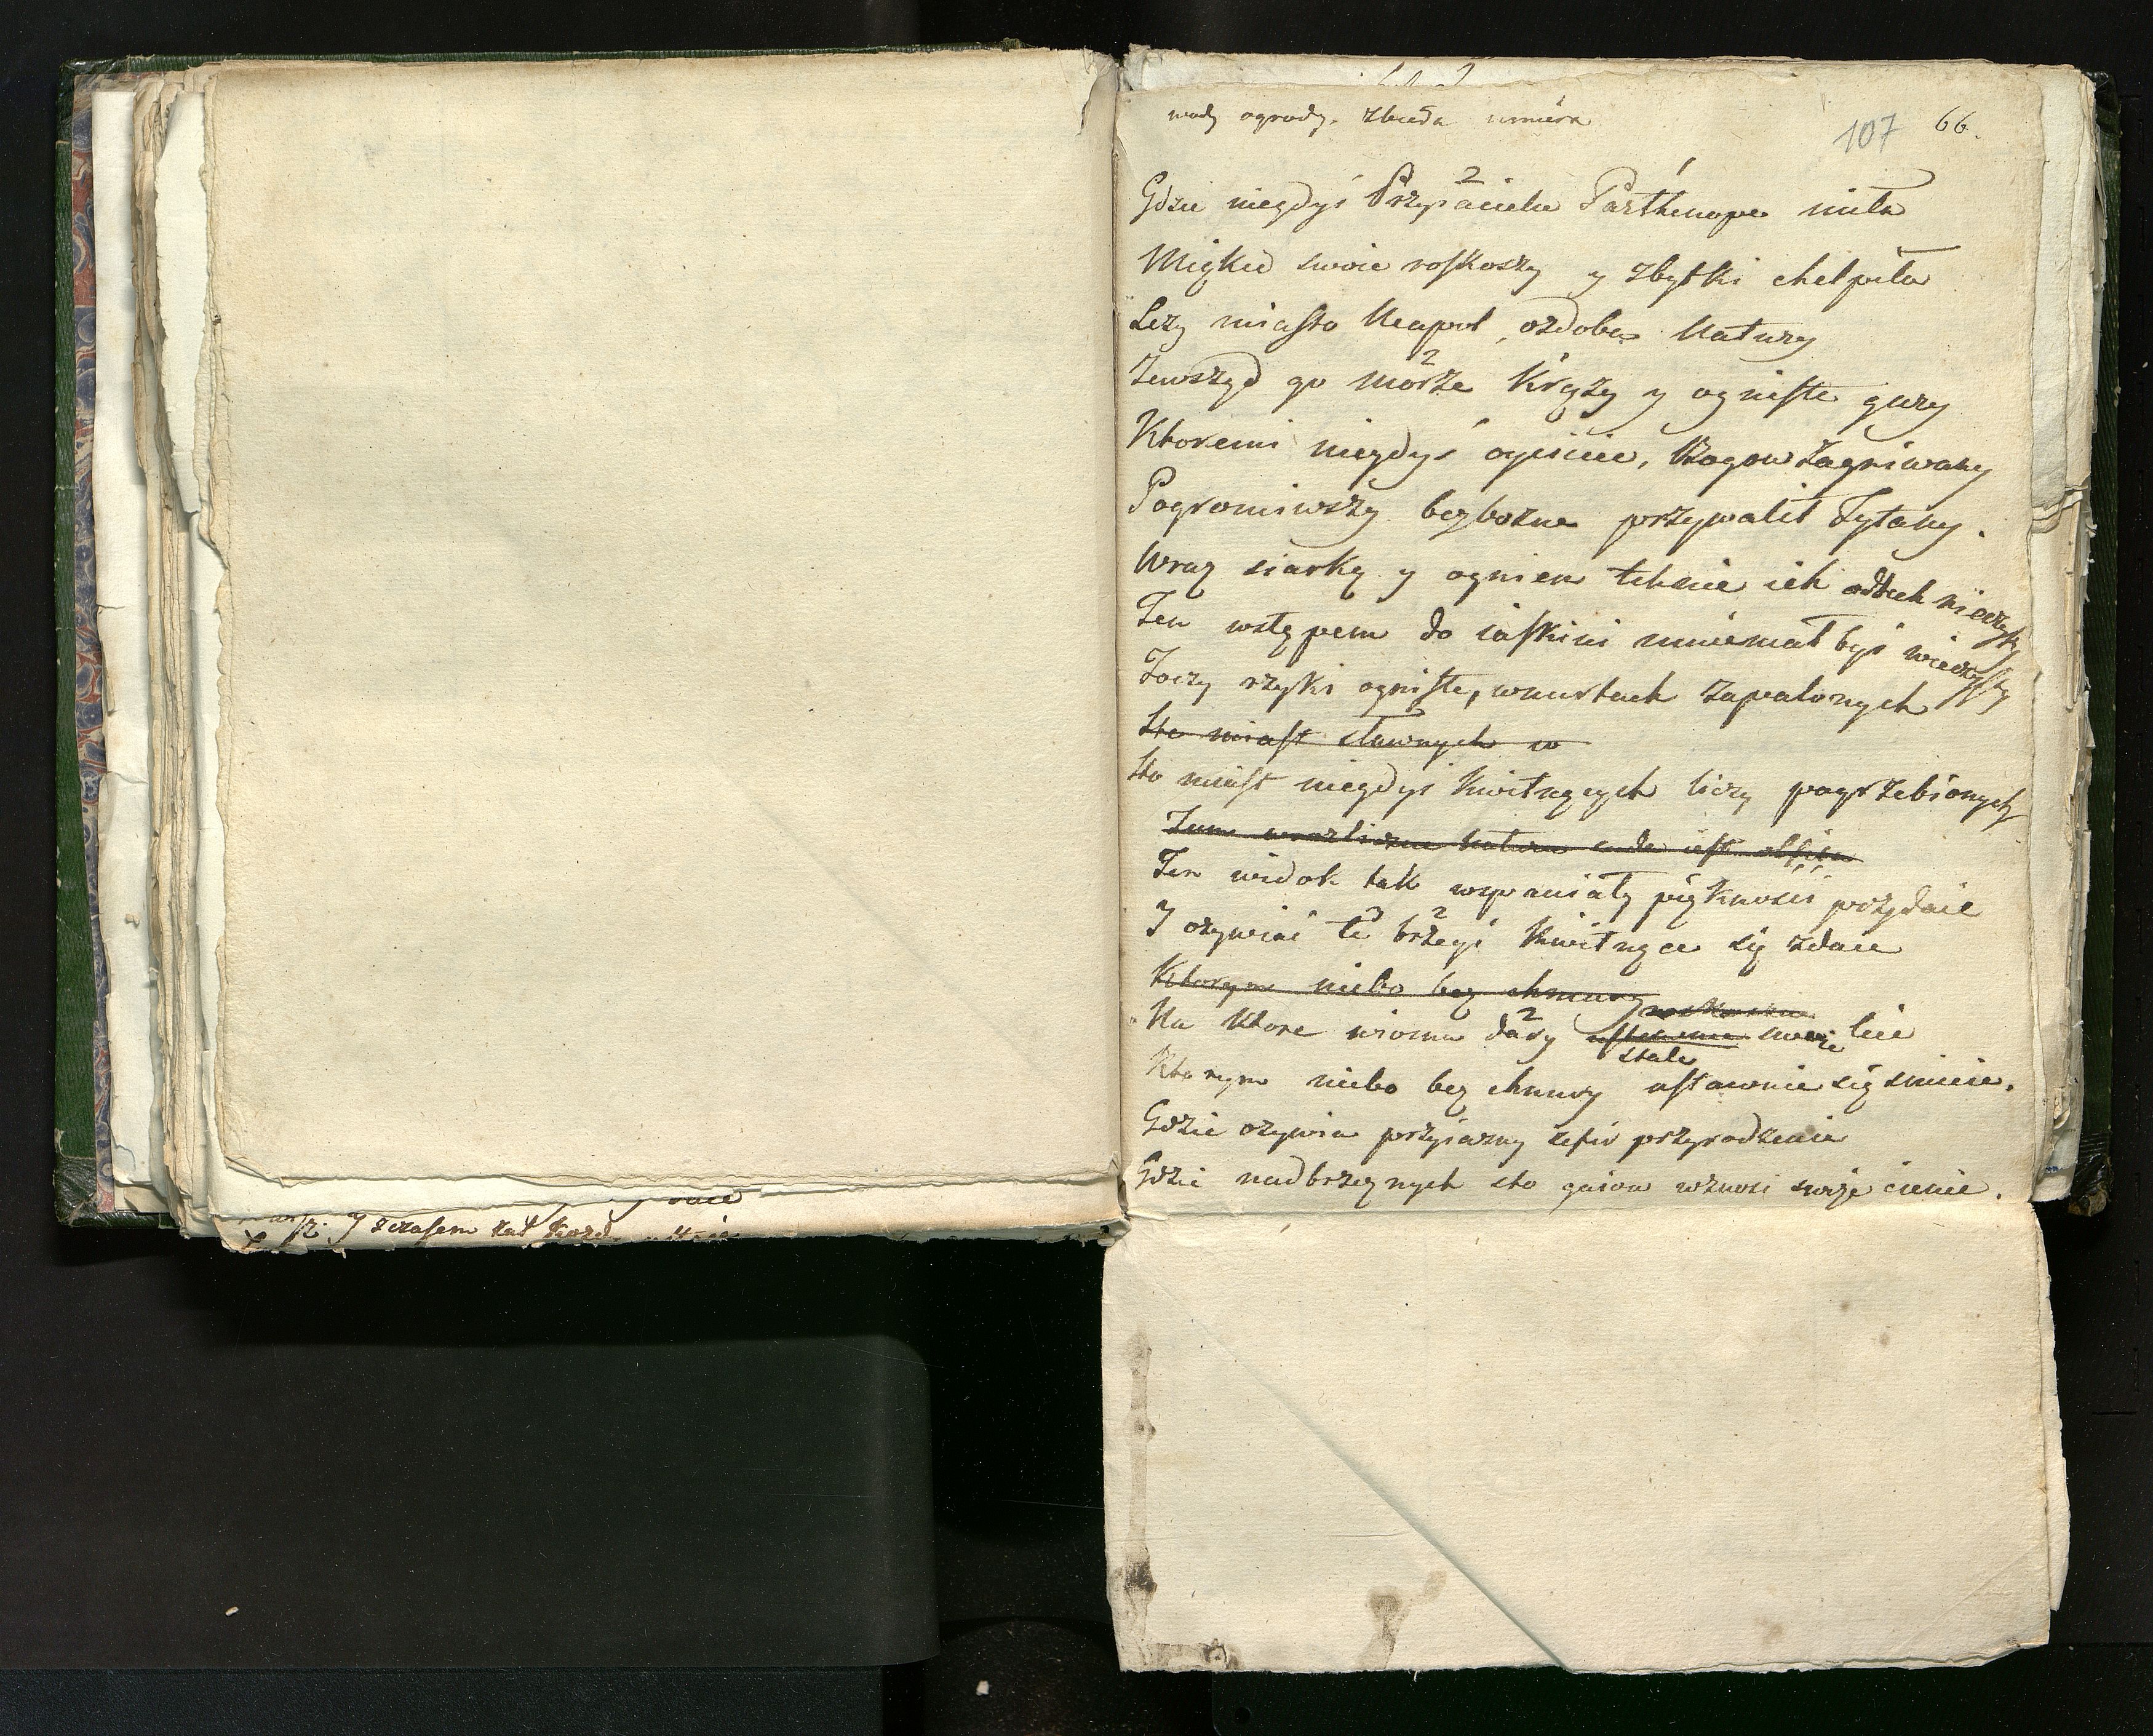 y sczasem
wody ogrody. zbudza umiera
107 66.
2 1
Gdzie niegdyś Przyiacielu Parthenope miła
Miękie swoie roskoszy y zbytki chełpiła
Leży miasto Neapol, ozdoba Natury
2
Zewsząd go morze krąży y ogniste gury
Ktoremi niegdyś oyciec, Bogow zagniwany
Pogromiwszy bezbożne przywalił Tytany.
Wraz siarką y ogniem tchnie ich oddech nieczysty
Ten wstępem do iaskini mniemał być wieczysty
Toczy rzyki ogniste, w nurtach zapalonych
Sto miast sławnych w
Sto miast niegdyś kwitnących liczy pogrzebionych
Ten widok tak wspaniały piękności przydaie
3 2
I ożywiać te brzegi kwitnące się zdaie
Ktorym niebo bez chmury
2
Na ktore wiosna dary ustawnie swoie leie
stale
Ktorym niebo bez chmury ustawnie się smieie.
Gdzie ożywia przyiazny zefir przyrodzenie
Gdzie nadbrzeżnych sto gaiow wznosi swoje cienie.